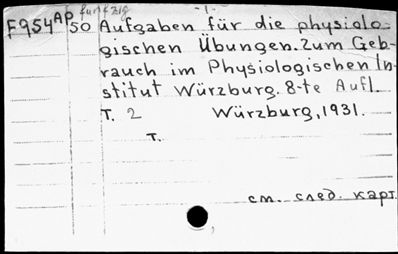 AP fünfzig -1-
F954 50 Aufgaben für die physiolo-
gischen Übungen. Zum Geb-
rauch im Physiologischen In-
stitut Würzburg. 8-te Aufl.
T. 2 Würzburg, 1931.
T.
см. след. карт